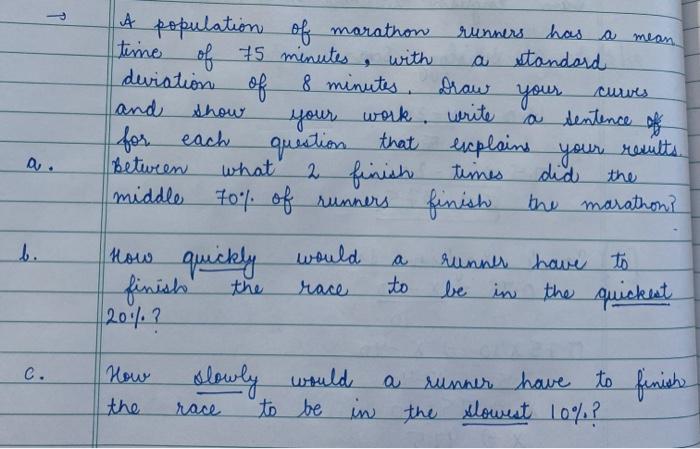 → A population of marathon runners has a mean
time of 75 minutes, with a standard
deviation of 8 minutes. Draw your curves
and show your work. write a sentence
for each question that explains your results.
a. Between what 2 finish times did the
middle 70% of runners finish the marathon?
b. How quickly would a runner have to
finish the race to be in the quickest
20%?
c. How slowly would a runner have to finish
the race to be in the slowest 10%?